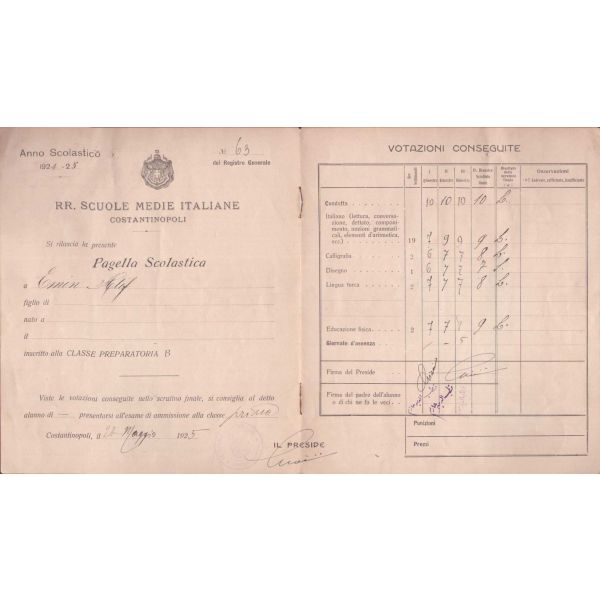 Anno Scolastico
1924-25
N. 63
del Registro Generale
RR. SCUOLE MEDIE ITALIANE
COSTANTINOPOLI
Si rilascia la presente
Pagella Scolastica
a Emin
figlio di
nato a
il
inscritto alla CLASSE PREPARATORIA B
Viste le votazioni conseguite nello scrutinio finale, si consiglia al detto
alunno di — presentarsi all'esame di ammissione alla classe prima
Costantinopoli, il 28 Maggio 1925
IL PRESIDE
VOTAZIONI CONSEGUITE
I II III
Osservazioni
Condotta 10 10 10 10
Italiano (lettura, conversa-
zione, dettato, componi-
mento, nozioni grammati-
cali, elementi d'aritmetica,
ecc.) 19 7 9 9 9
Calligrafia 2 6 7 7 8
Disegno 1 6 7 7 7
Lingua turca 2 7 7 7 8
Educazione fisica 2 7 7 9
Giornate d'assenza — 5
Firma del Preside
Firma del padre dell'alunno
o di chi ne fa le veci
Punizioni
Premi